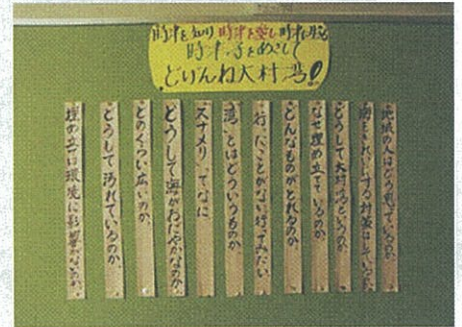 時津を知り 時津を愛し 時津に
時津学をめざして
どげんね大村湾!
地域の人はどう思っているのか、
海をきれいにする対策はしているか
どうして大村湾というのか、
なぜ埋め立てているのか、
どんなものがとれるのか、
行ったことがない行ってみたい、
湾、とはどういうものか、
スナメリ、てなに
どうして海がおだやかなのか、
どのくらい広いのか、
どうして汚れているのか、
埋め立ては環境に影響がないのか、